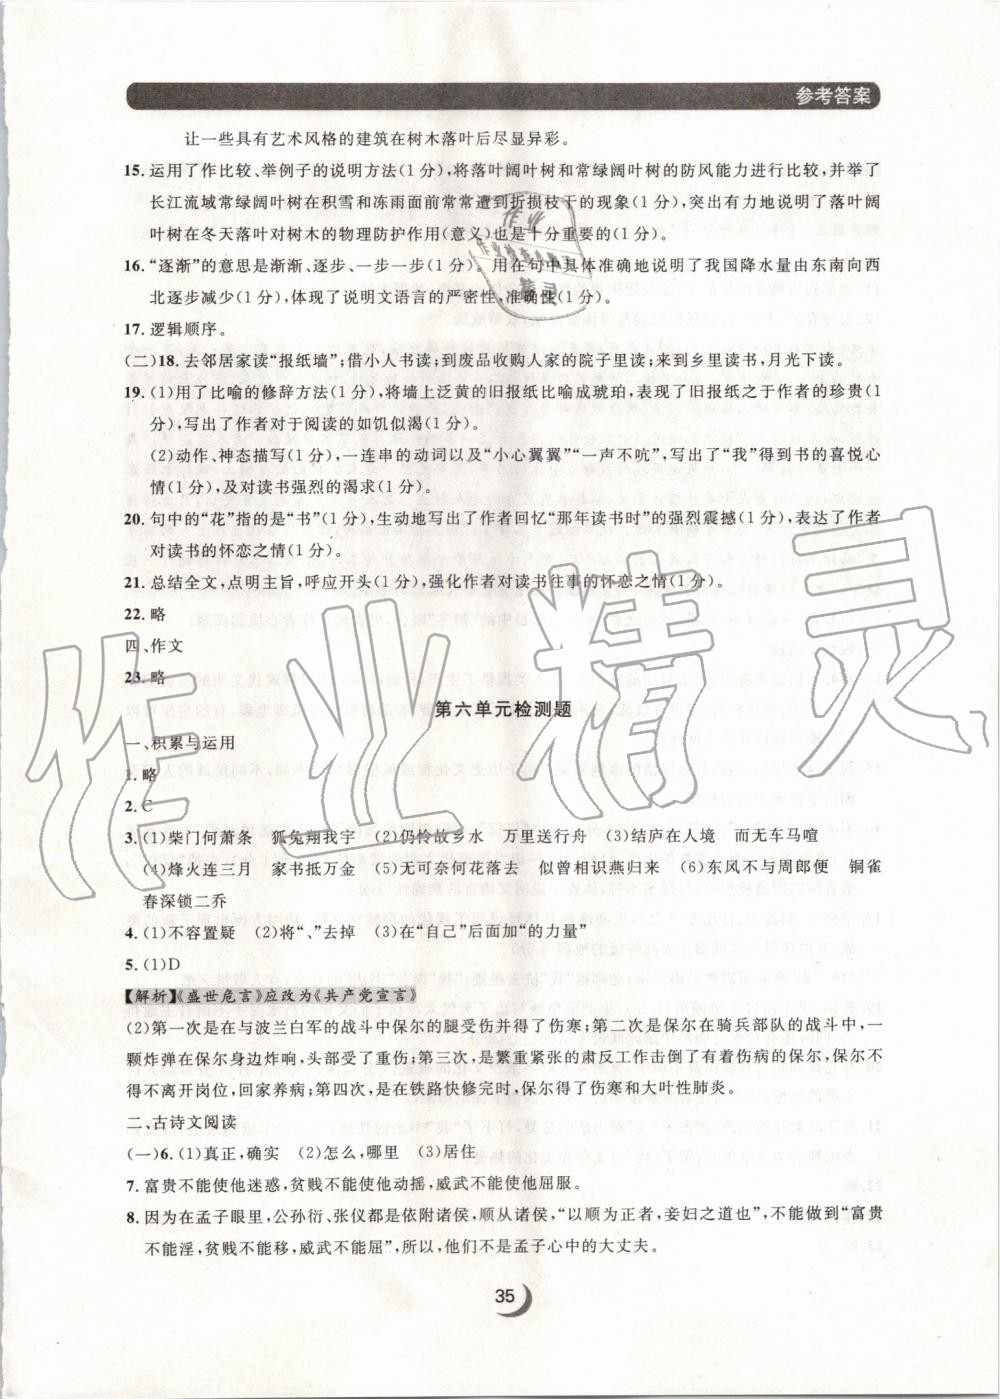 参考答案
让一些具有艺术风格的建筑在树木落叶后尽显异彩。
15. 运用了作比较、举例子的说明方法(1分),将落叶阔叶树和常绿阔叶树的防风能力进行比较,并举了
长江流域常绿阔叶树在积雪和冻雨面前常常遭到折损枝干的现象(1分),突出有力地说明了落叶阔
叶树在冬天落叶对树木的物理防护作用(意义)也是十分重要的(1分)。
16. “逐渐”的意思是渐渐、逐步、一步一步(1分)。用在句中具体准确地说明了我国降水量由东南向西
北逐步减少(1分),体现了说明文语言的严密性,准确性(1分)。
17. 逻辑顺序。
(二)18. 去邻居家读“报纸墙”;借小人书读;到废品收购人家的院子里读;来到乡里读书,月光下读。
19. (1)用了比喻的修辞方法(1分),将墙上泛黄的旧报纸比喻成琥珀,表现了旧报纸之于作者的珍贵(1
分),写出了作者对于阅读的如饥似渴(1分)。
(2)动作、神态描写(1分),一连串的动词以及“小心翼翼”“一声不吭”,写出了“我”得到书的喜悦心
情(1分),及对读书强烈的渴求(1分)。
20. 句中的“花”指的是“书”(1分),生动地写出了作者回忆“那年读书时”的强烈震撼(1分),表达了作者
对读书的怀恋之情(1分)。
21. 总结全文,点明主旨,呼应开头(1分),强化作者对读书往事的怀恋之情(1分)。
22. 略
四、作文
23. 略
第六单元检测题
一、积累与运用
1. 略
2. C
3. (1)柴门何萧条 狐兔翔我宇 (2)仍怜故乡水 万里送行舟 (3)结庐在人境 而无车马喧
(4)烽火连三月 家书抵万金 (5)无可奈何花落去 似曾相识燕归来 (6)东风不与周郎便 铜雀
春深锁二乔
4. (1)不容置疑 (2)将“、”去掉 (3)在“自己”后面加“的力量”
5. (1)D
【解析】《盛世危言》应改为《共产党宣言》
(2)第一次是在与波兰白军的战斗中保尔的腿受伤并得了伤寒;第二次是保尔在骑兵部队的战斗中,一
颗炸弹在保尔身边炸响,头部受了重伤;第三次,是繁重紧张的肃反工作击倒了有着伤病的保尔,保尔不
得不离开岗位,回家养病;第四次,是在铁路快修完时,保尔得了伤寒和大叶性肺炎。
二、古诗文阅读
(一)6. (1)真正,确实 (2)怎么,哪里 (3)居住
7. 富贵不能使他迷惑,贫贱不能使他动摇,威武不能使他屈服。
8. 因为在孟子眼里,公孙衍、张仪都是依附诸侯,顺从诸侯,“以顺为正者,妾妇之道也”,不能做到“富贵
不能淫,贫贱不能移,威武不能屈”,所以,他们不是孟子心中的大丈夫。
35
作业精灵